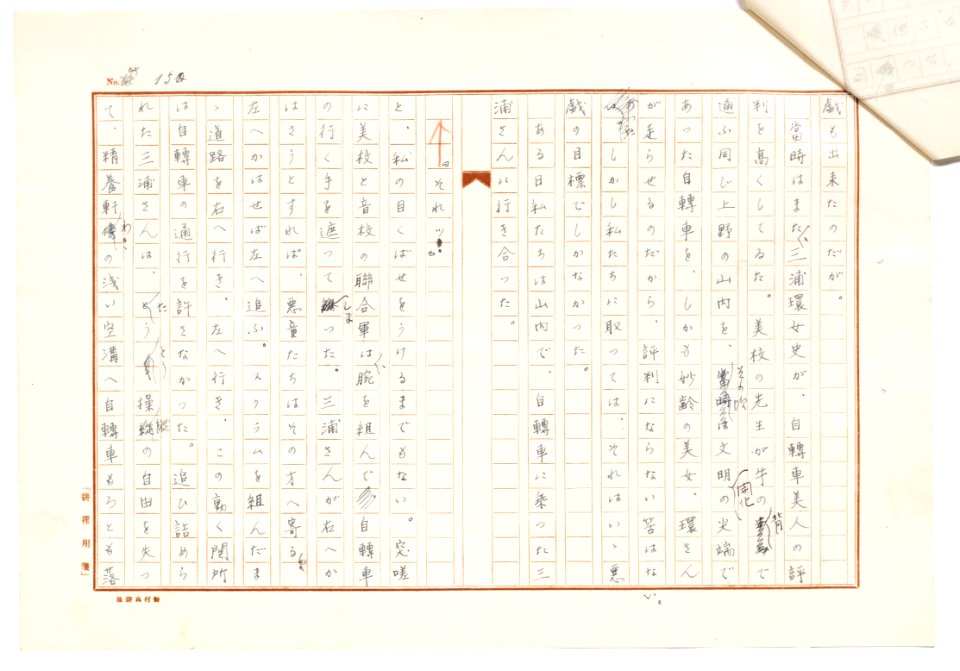 No. 15
戯も出来たのだが。
當時はまだ、三浦環女史が、自轉車美人の評
判を高くしてゐた。美校の先生が牛の背で
通ふ同じ上野の山内を、その頃文明開化の尖端で
あつた自轉車を、しかも妙齢の美女、環さん
が走らせるのだから、評判にならない筈はな
い。
しかし私たちに取つては、それはいゝ悪
戯の目標でしかなかつた。
ある日私たちは山内で、自轉車に乘つた三
浦さんに行き合つた。
「それッ!」
と、私の目くばせをうけるまでもない。突嗟
に美校と音校の聯合軍は、腕を組んで自轉車
の行く手を遮つてしまつた。三浦さんが右へか
はさうとすれば、悪童たちはその方へ寄る。
左へかはせば左へ追ふ。スクラムを組んだま
ゝ道路を右へ行き、左へ行き、この動く関所
は自轉車の通行を許さなかつた。追ひ詰めら
れた三浦さんは、たうとう操縦の自由を失つ
て、精養軒わきの浅い空溝へ自轉車もろとも落
「耕 花 用 箋」